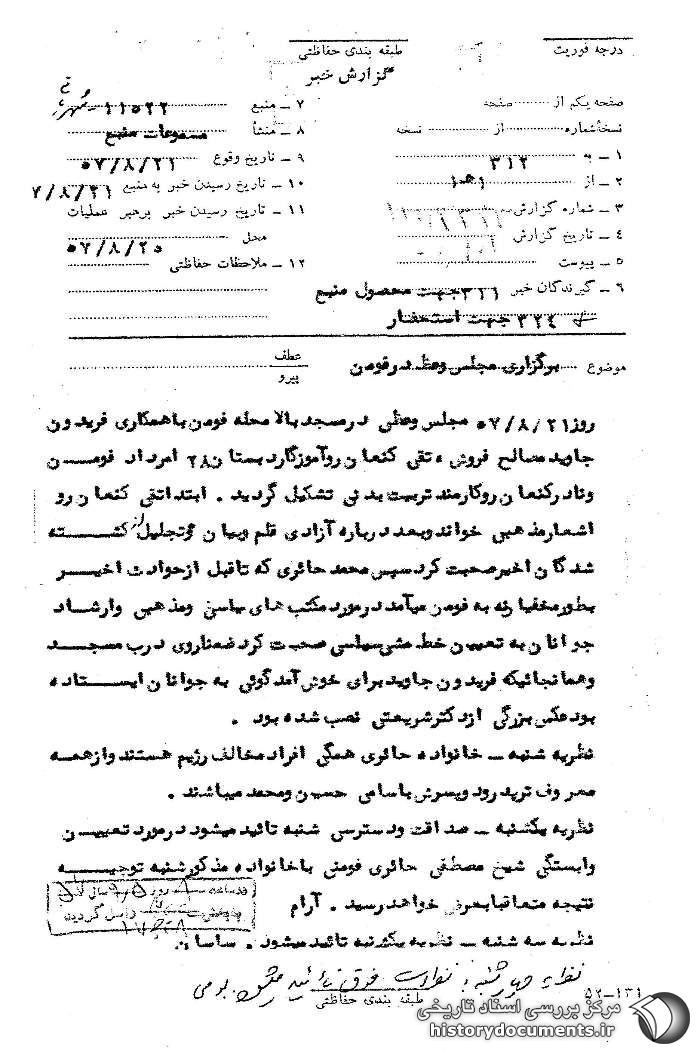 درجه فوریت
طبقه بندی حفاظتی
گزارش خبر
صفحه یکم از صفحه
نسخه‌شماره از نسخه
۱ ـ به ۳۱۲
۲ ـ از
۳ ـ شماره گزارش
۴ ـ تاریخ گزارش
۵ ـ پیوست
۶ ـ گیرندگان خبر ۳۲۱جهت محصول منبع
۳۲۴ جهت استحضار
۷ ـ منبع ۱۱۵۲۲
۸ ـ منشأ مسموعات منبع
۹ ـ تاریخ وقوع ۵۷/۸/۲۱
۱۰ ـ تاریخ رسیدن خبر به منبع ۷/۸/۲۱
۱۱ ـ تاریخ رسیدن خبر برهبر عملیات
محل ۵۷/۸/۲۵
۱۲ ـ ملاحظات حفاظتی
موضوع برگزاری مجلس وعظ در فومن
عطف
پیرو
روز ۵۷/۸/۲۱ مجلس وعظی در مسجد بالا محله فومن با همکاری فریدون
جاوید مصالح فروش ، تقی کنعان رو آموزگار دبستان ۲۸ امرداد فومن
و نادر کنعان رو کارمند تربیت بدنی تشکیل گردید . ابتدا تقی کنعان رو
اشعار مذهبی خواند و بعد درباره آزادی قلم و بیان و تجلیل از کشته
شدگان اخیر صحبت کرد سپس محمد حائری که تا قبل از حوادث اخیر
بطور مخفیانه به فومن میآمد در مورد مکتب های سیاسی و مذهبی و ارشاد
جوانان به تعیین خط مشی سیاسی صحبت کرد ضمنا روی درب مسجد
و همانجائیکه فریدون جاوید برای خوش آمدگوئی به جوانان ایستاده
بود عکس بزرگی از دکتر شریعتی نصب شده بود .
نظریه شنبه ـ خانواده حائری همگی افراد مخالف رژیم هستند و از همه
معروف تر پدر و پسرش باسامی حسین و محمد میباشند .
نظریه یکشنبه ـ صداقت و دسترسی شنبه تائید میشود در مورد تعیین
وابستگی شیخ مصطفی حائری فومنی با خانواده مذکور شنبه توجیه
نتیجه متعاقبا بعرض خواهد رسید . آرام
نظریه سه شنبه ـ نظریه یکشنبه تائید میشود . ساسان
نظریه چهارشنبه : نظرات فوق تائید میشود . بومی
واصل گردید
طبقه بندی حفاظتی
۵۲-۱۳۱
مرکز بررسی اسناد تاریخی
historydocuments.ir